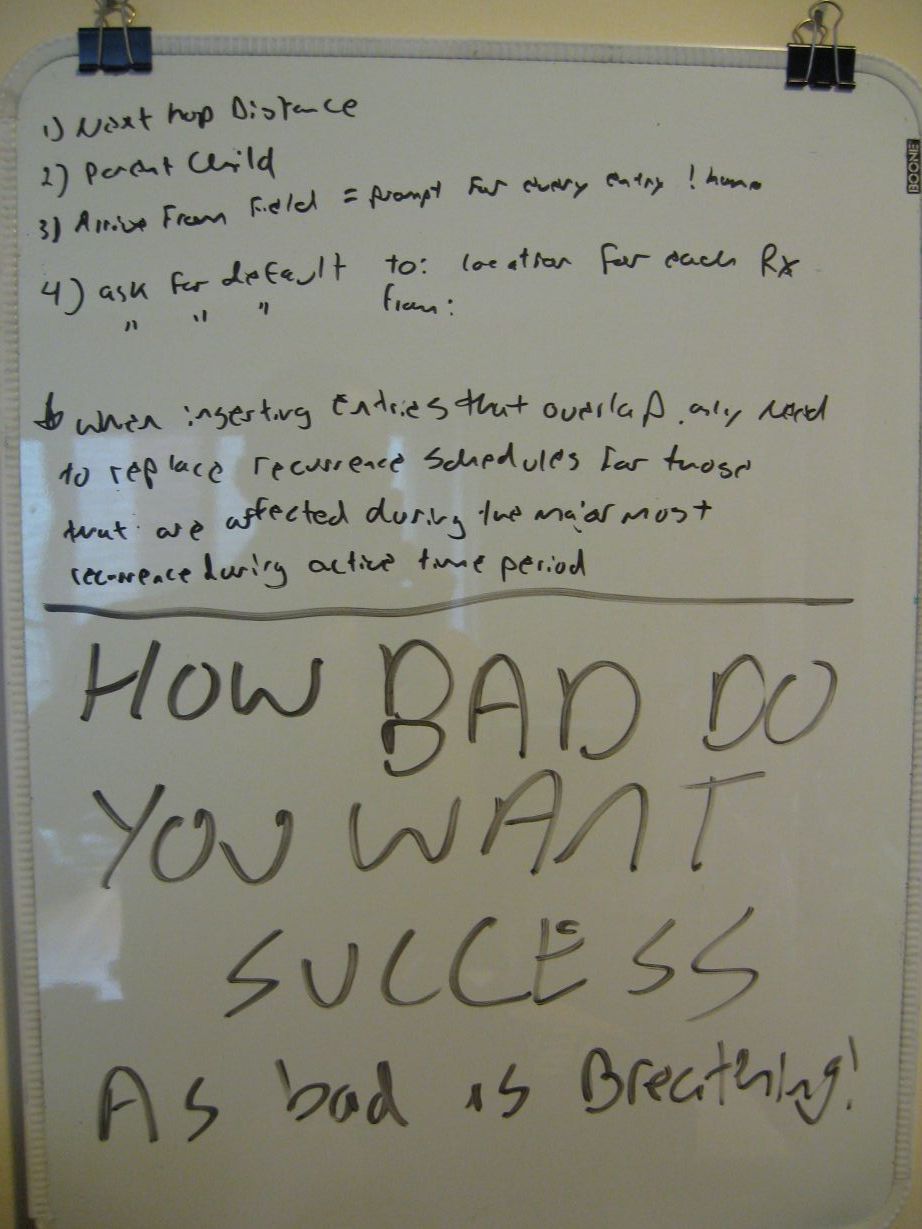 1) Next hop Distance
2) Parent Child
3) Arrive From Field = prompt For every entry ! home
4) ask for default to: location for each Rx
" " " from:
when inserting Entries that overlap only need
to replace recurrence schedules for those
that are affected during the major most
recurrence during active time period
HOW BAD DO
YOU WANT
SUCCESS
As bad is Breathing!
BOONE